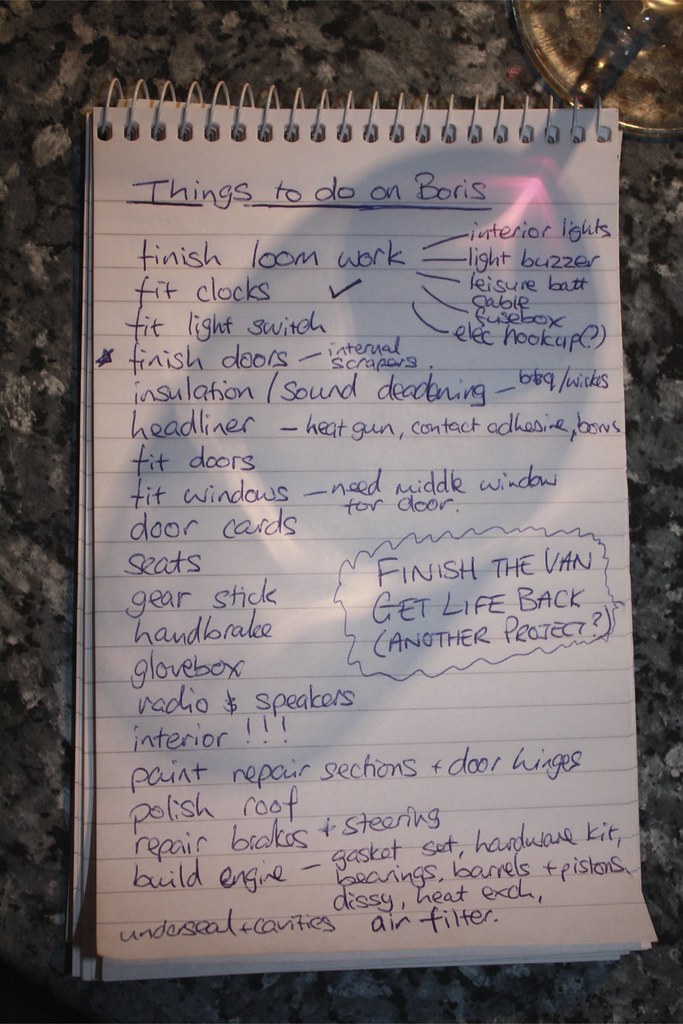 Things to do on Boris
finish loom work
interior lights
light buzzer
leisure batt
cable
fusebox
elec hookup(?)
fit clocks ✓
fit light switch
* finish doors – internal
scrapers.
insulation / sound deadening – b&q/wickes
headliner – heat gun, contact adhesive, bows
fit doors
fit windows – need middle window
for door.
door cards
seats
gear stick
handbrake
glovebox
radio & speakers
interior !!!
FINISH THE VAN
GET LIFE BACK
(ANOTHER PROJECT?)
paint repair sections + door hinges
polish roof
repair brakes + steering
build engine – gasket set, hardware kit,
bearings, barrels + pistons,
dissy, heat exch,
air filter.
underseal + cavities